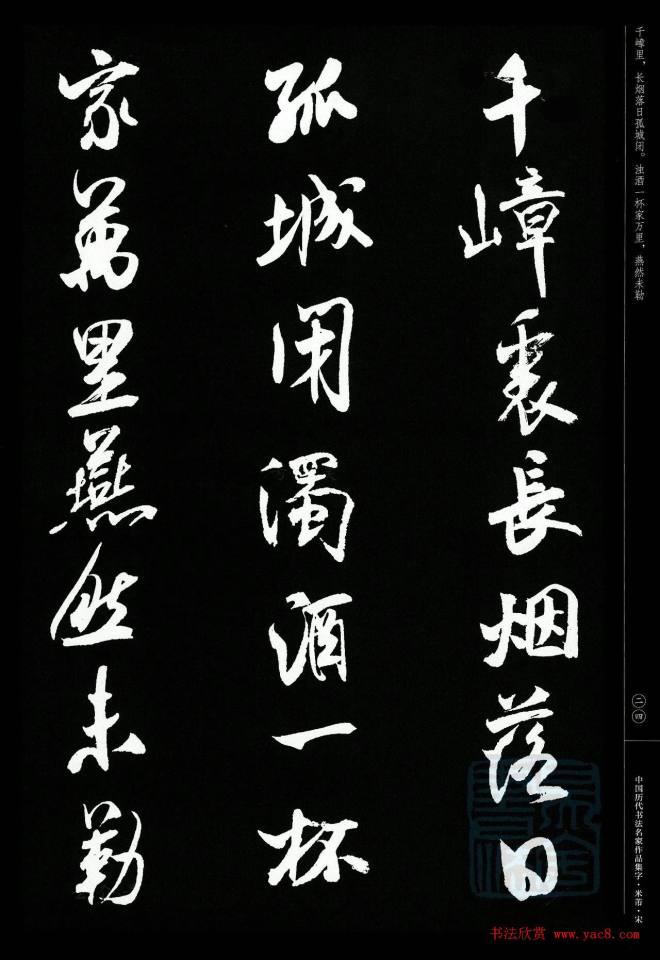 千嶂裏長烟落日
孤城閉濁酒一杯
家萬里燕然未勒
千嶂里，长烟落日孤城闭。浊酒一杯家万里，燕然未勒
二四
中国历代书法名家作品集字·米芾·宋
书法欣赏 www.yac8.com